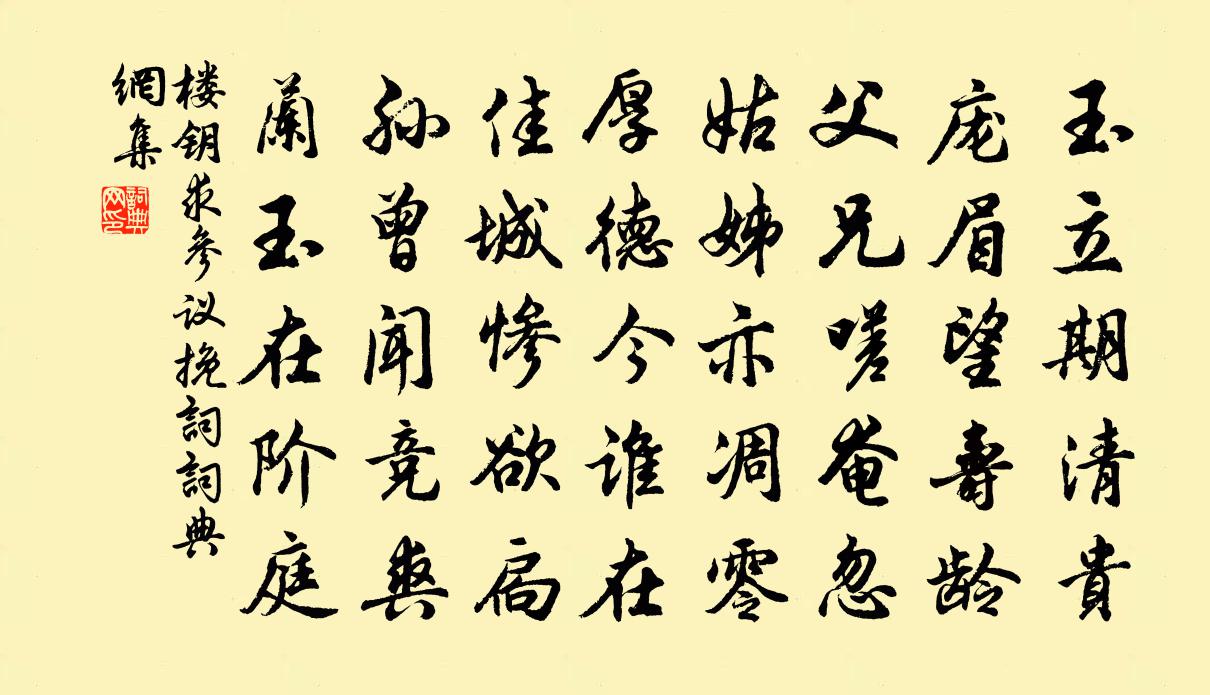 玉立期清貴
庞眉望壽龄
父兄嗟奄忽
姑姊亦凋零
厚德今谁在
佳城惨欲扃
孙曾闻竞爽
蘭玉在阶庭
楼钥求参议挽詞詞典
網集
詞典
网印